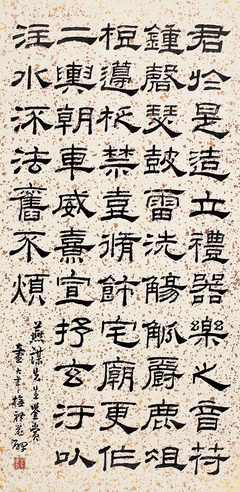 君於是造立禮器樂之音符
鍾磬瑟鼓雷洗觴觚爵鹿俎
梪籩柉禁壺脩飾宅廟更作
二輿朝車威熹宣抒玄汙以
注水流法舊不煩
燕謀先生鑒賞